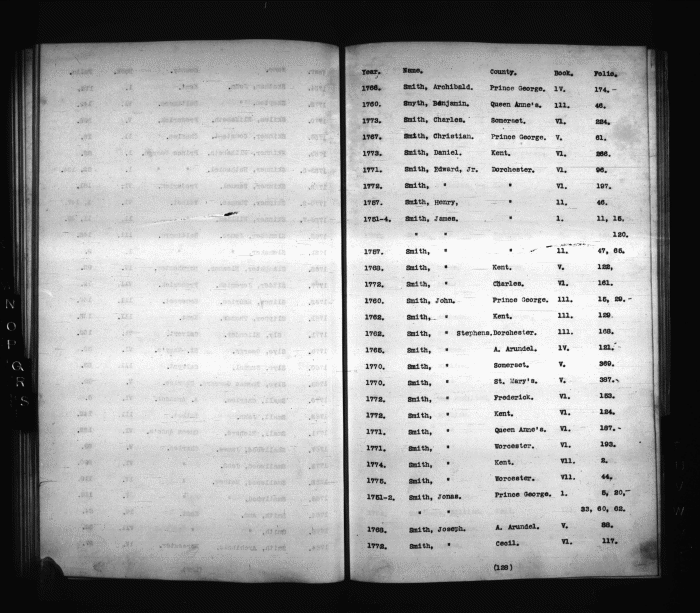 Year. Name. County. Book. Folio.
1766. Smith, Archibald. Prince George. 1V. 174.
1760. Smyth, Benjamin. Queen Anne's. 111. 46.
1773. Smith, Charles. Somerset. V1. 284.
1767. Smith, Christian. Prince George. V. 61.
1773. Smith, Daniel. Kent. V1. 266.
1771. Smith, Edward, Jr. Dorchester. V1. 96.
1772. Smith, " " V1. 197.
1757. Smith, Henry, " 11. 46.
1751-4. Smith, James. " 1. 11, 15,
" " 120.
1757. Smith, " " 11. 47, 65.
1768. Smith, " Kent. V. 122,
1772. Smith, " Charles. V1. 161.
1760. Smith, John. Prince George. 111. 15, 29.
1762. Smith, " Kent. 111. 129
1762. Smith, " Stephens. Dorchester. 111. 168.
1765. Smith, " A. Arundel. 1V. 121.
1770. Smith, " Somerset. V. 369.
1770. Smith, " St. Mary's. V. 387.
1772. Smith, " Frederick. V1. 153.
1772. Smith, " Kent. V1. 124.
1771. Smith, " Queen Anne's. V1. 187.
1771. Smith, " Worcester. V1. 193.
1774. Smith, " Kent. V11. 2.
1775. Smith, " Worcester. V11. 44.
1751-2. Smith, Jonas. Prince George. 1. 5, 20,
" " 33, 60, 62.
1768. Smith, Joseph. A. Arundel. V. 88.
1772. Smith, " Cecil. V1. 117.
(128)